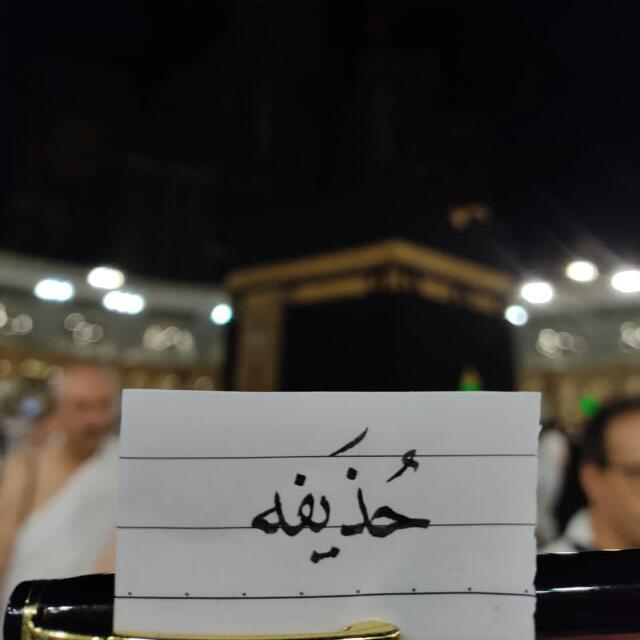 حُذَيفه